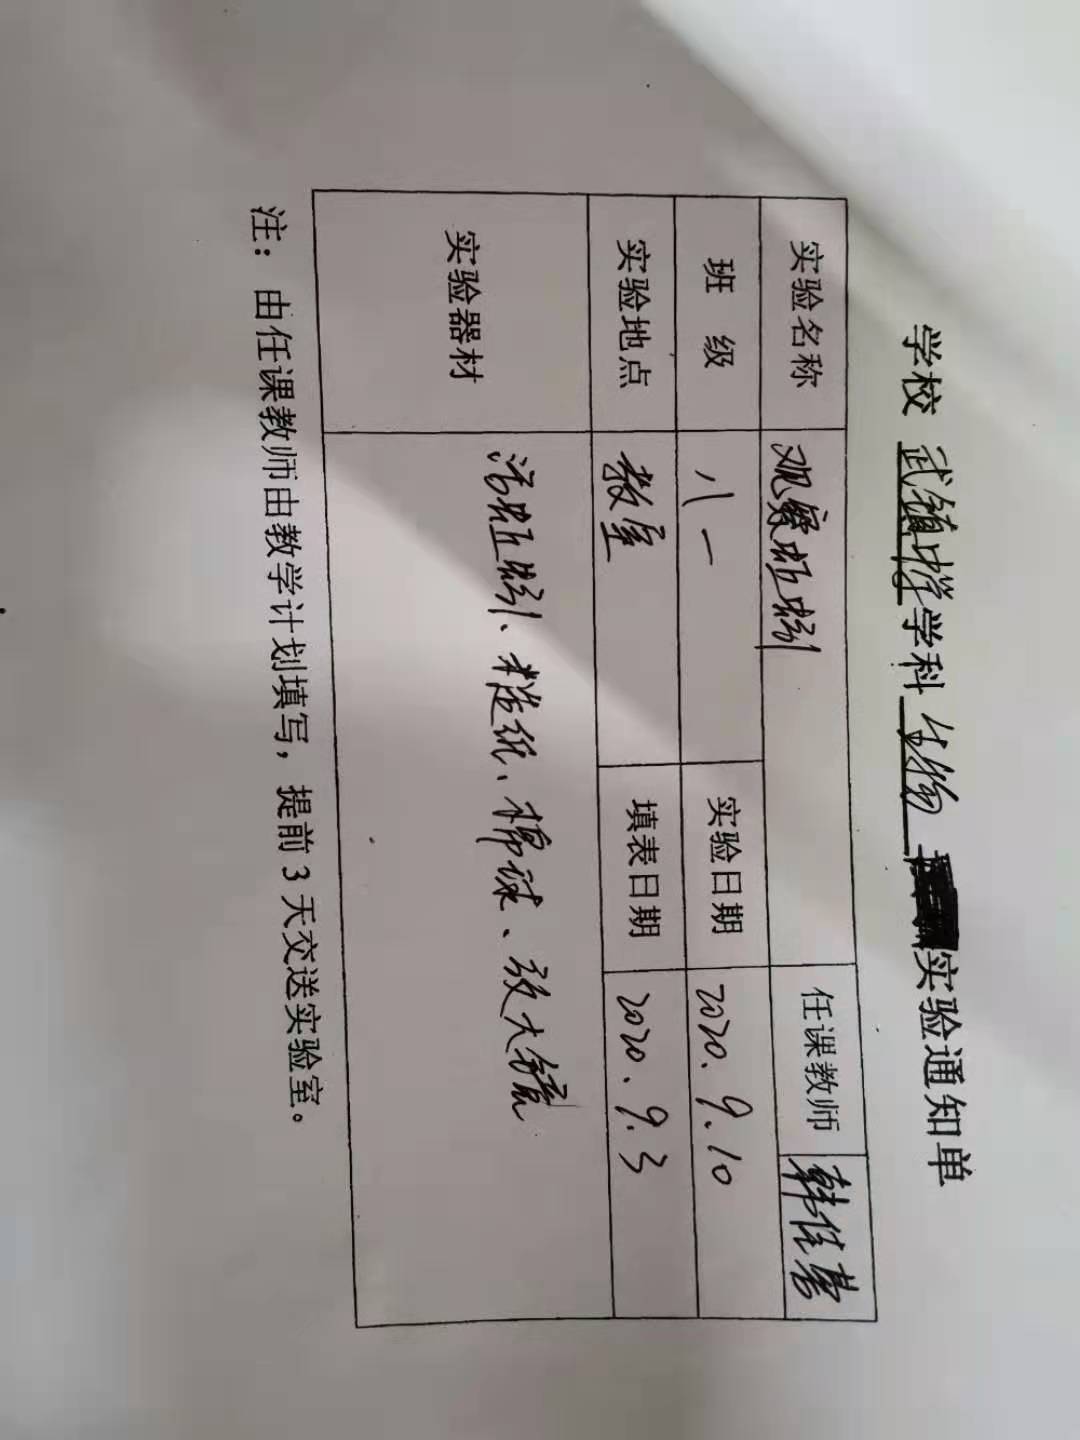 学校 武镇中学 学科 生物 实验通知单
实验名称 观察蚯蚓 任课教师 韩佳
班 级 八一 实验日期 2020.9.10
实验地点 教室 填表日期 2020.9.3
实验器材 活蚯蚓、糙纸、棉球、放大镜
注：由任课教师由教学计划填写，提前3天交送实验室。